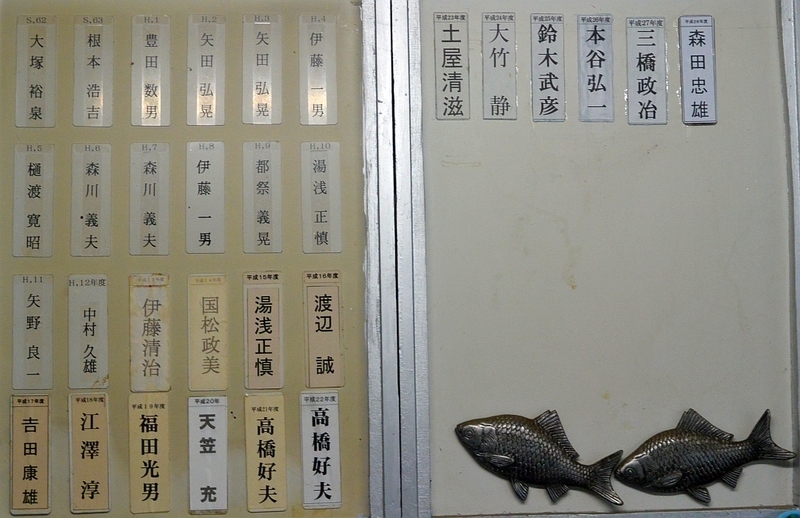 S.62
大塚 裕泉
S.63
根本 浩吉
H.1
豊田 数男
H.2
矢田 弘晃
H.3
矢田 弘晃
H.4
伊藤 一男
H.5
樋渡 寛昭
H.6
森川 義夫
H.7
森川 義夫
H.8
伊藤 一男
H.9
都祭 義晃
H.10
湯浅 正慎
H.11
矢野 良一
H.12年度
中村 久雄
伊藤清治
国松政美
平成15年度
湯浅正慎
平成16年度
渡辺 誠
平成17年度
吉田康雄
平成18年度
江澤 淳
平成19年度
福田光男
平成20年
天笠 充
平成21年度
高橋好夫
平成22年度
高橋好夫
平成23年度
土屋清滋
平成24年度
大竹 静
平成25年度
鈴木武彦
平成26年度
本谷弘一
平成27年度
三橋政治
平成28年度
森田忠雄